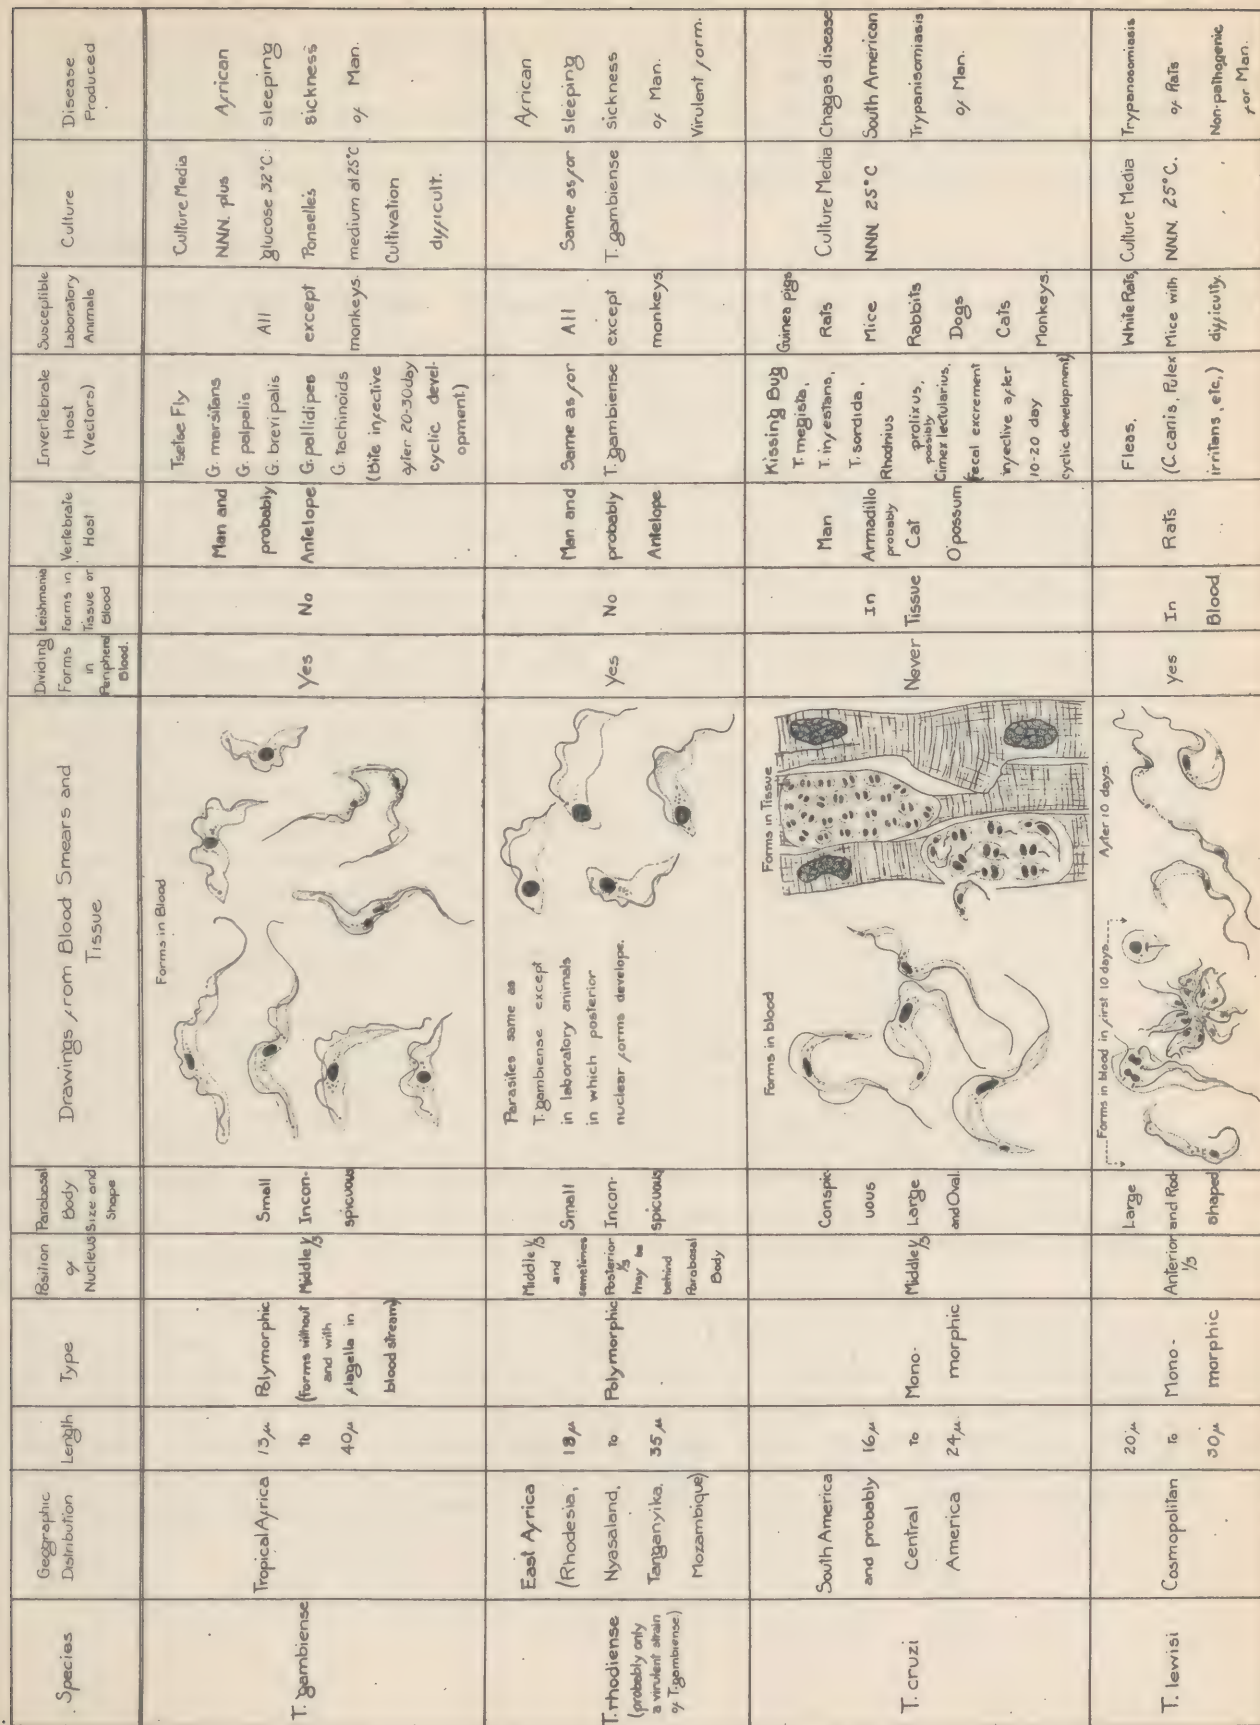 Species
Geographic
Distribution
Length
Type
Position
of
Nucleus
Parabasal
Body
Size and
Shape
Drawings from Blood Smears and
Tissue
Dividing
Forms
in
Peripheral
Blood.
Leishmania
Forms in
Tissue or
Blood
Vertebrate
Host
Invertebrate
Host
(Vectors)
Susceptible
Laboratory
Animals
Culture
Disease
Produced
T. gambiense
Tropical Africa
15µ
to
40µ
Polymorphic
(forms without
and with
flagella in
blood stream)
Middle ⅓
Small
Incon-
spicuous
Forms in Blood
Yes
No
Man and
probably
Antelope
Tsetse Fly
G. morsitans
G. palpalis
G. brevipalis
G. pallidipes
G. tachinoids
(Bite infective
after 20-30 day
cyclic devel-
opment)
All
except
monkeys.
Culture Media
NNN. plus
glucose 32°C.
Ponselle's
medium at 25°C
Cultivation
difficult.
African
sleeping
sickness
of Man.
T. rhodiense
(probably only
a virulent strain
of T. gambiense)
East Africa
(Rhodesia,
Nyasaland,
Tanganyika,
Mozambique)
18µ
to
35µ
Polymorphic
Middle ⅓
and
sometimes
Posterior
⅓
may be
behind
Parabasal
Body
Small
Incon-
spicuous
Parasites same as
T. gambiense except
in laboratory animals
in which posterior
nuclear forms develope.
yes
No
Man and
probably
Antelope
Same as for
T. gambiense
All
except
monkeys.
Same as for
T. gambiense
African
sleeping
sickness
of Man.
Virulent form.
T. cruzi
South America
and probably
Central
America
16µ
To
24µ
Mono-
morphic
Middle ⅓
Conspic-
uous
Large
and Oval.
Forms in blood
Forms in Tissue
Never
In
Tissue
Man
Armadillo
probably
Cat
O'possum
Kissing Bug
T. megista,
T. infestans,
T. sordida,
Rhodnius
prolixus,
possibly
Cimex lectularius,
fecal excrement
infective after
10-20 day
cyclic development)
Guinea pigs
Rats
Mice
Rabbits
Dogs
Cats
Monkeys.
Culture Media
NNN. 25°C
Chagas disease
South American
Trypanisomiasis
of Man.
T. lewisi
Cosmopolitan
20µ
To
30µ
Mono-
morphic
Anterior
⅓
Large
and Rod-
shaped
Forms in blood in first 10 days
After 10 days.
yes
In
Blood
Rats
Fleas.
(C. canis, Pulex
irritans, etc.,)
White Rats,
Mice with
difficulty.
Culture Media
NNN. 25°C.
Trypanosomiasis
of Rats
Non-pathogenic
for Man.